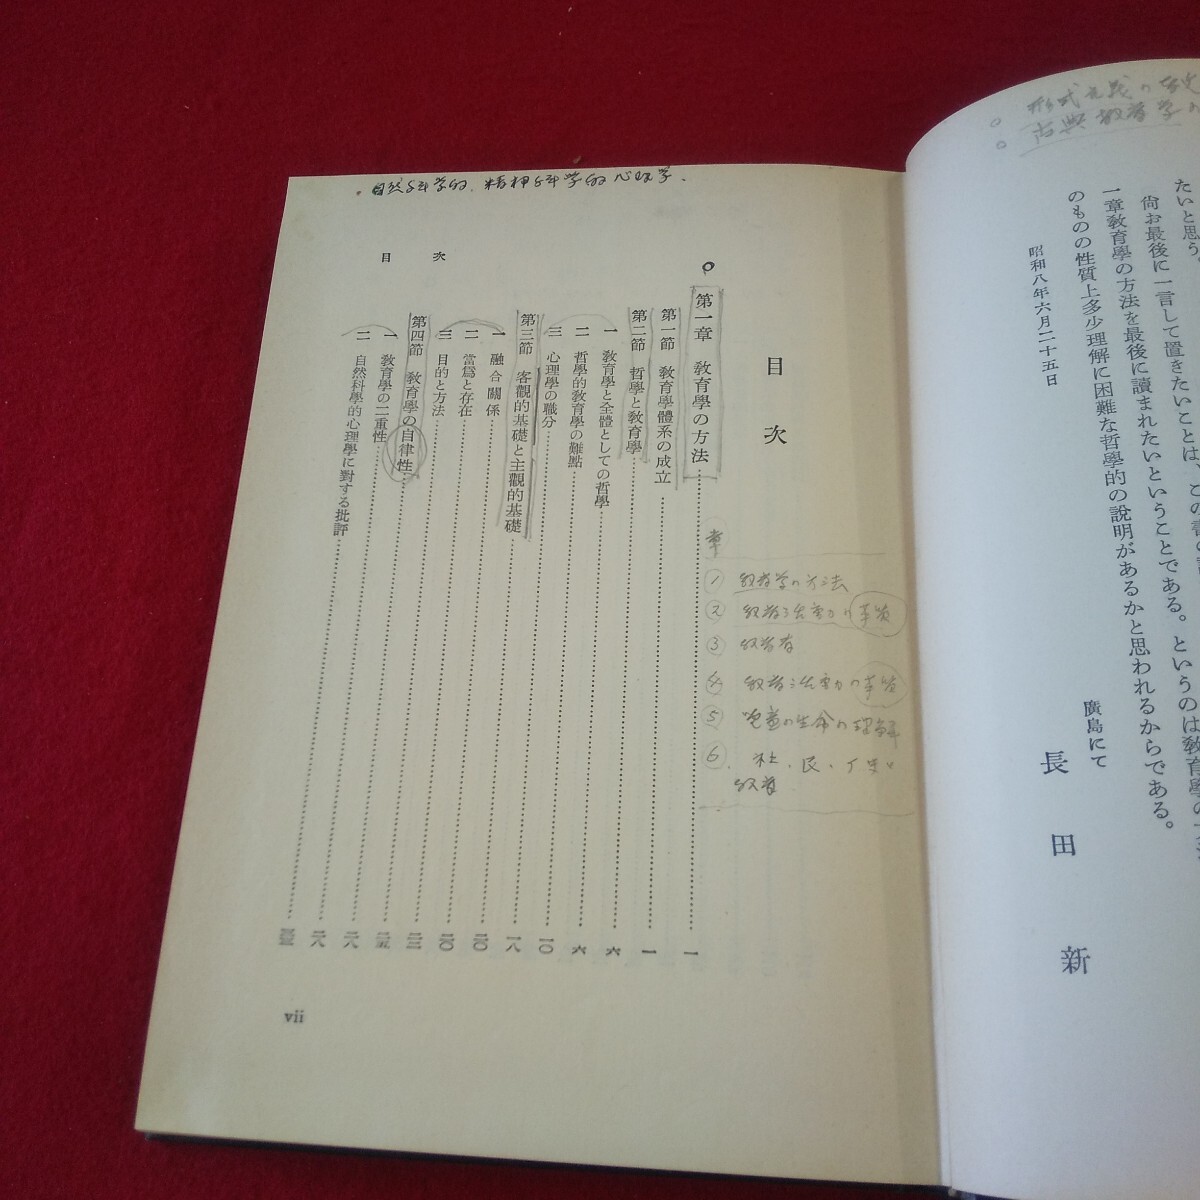 たいと思う。
尙お最後に一言して置きたいことは、この書の
一章教育學の方法を最後に讀まれたいということである。というのは教育學の方法
のものの性質上多少理解に困難な哲學的の說明があるかと思われるからである。
昭和八年六月二十五日
廣島にて
長田新
自然科学的、精神科学的心理学.
目次
目次
第一章 敎育學の方法 一
第一節 敎育學體系の成立 一
第二節 哲學と敎育學 六
一 敎育學と全體としての哲學 六
二 哲學的敎育學の難點 一〇
三 心理學の職分 一八
第三節 客觀的基礎と主觀的基礎 二〇
一 融合關係 二〇
二 當爲と存在
三 目的と方法
第四節 敎育學の自律性
一 敎育學の二重性
二 自然科學的心理學に對する批評
章
① 教育学の方法
② 教育活動の本質
③ 教育者
④ 教育活動の本質
⑤ 児童の生命の理解
⑥ 社・民・
教育
vii